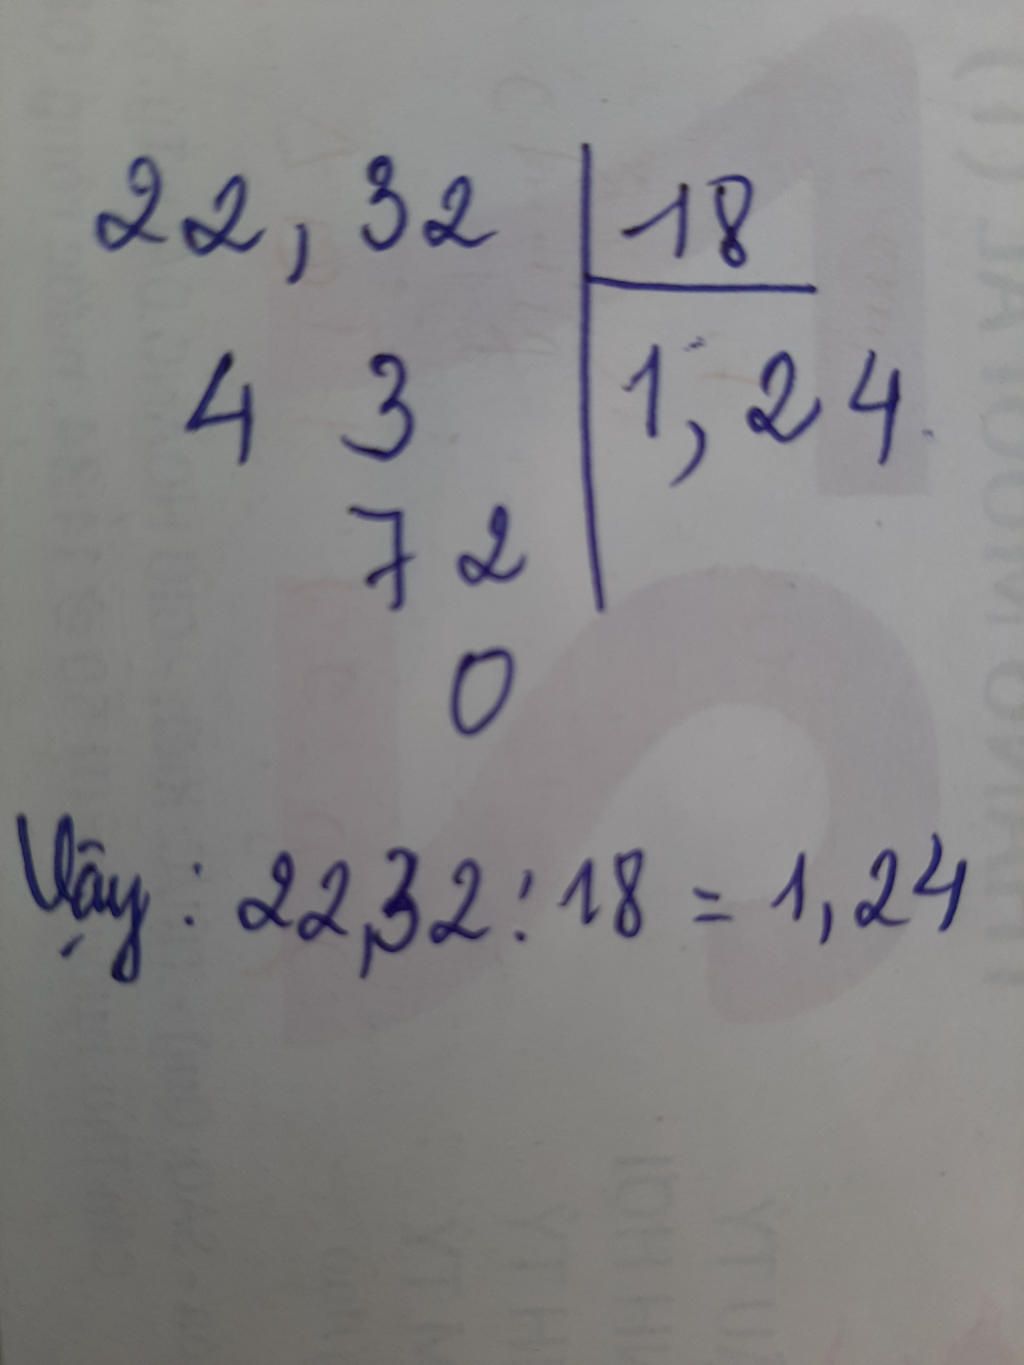 22,32 18
4 3 1,24.
7 2
0
Vậy: 22,32 : 18 = 1,24